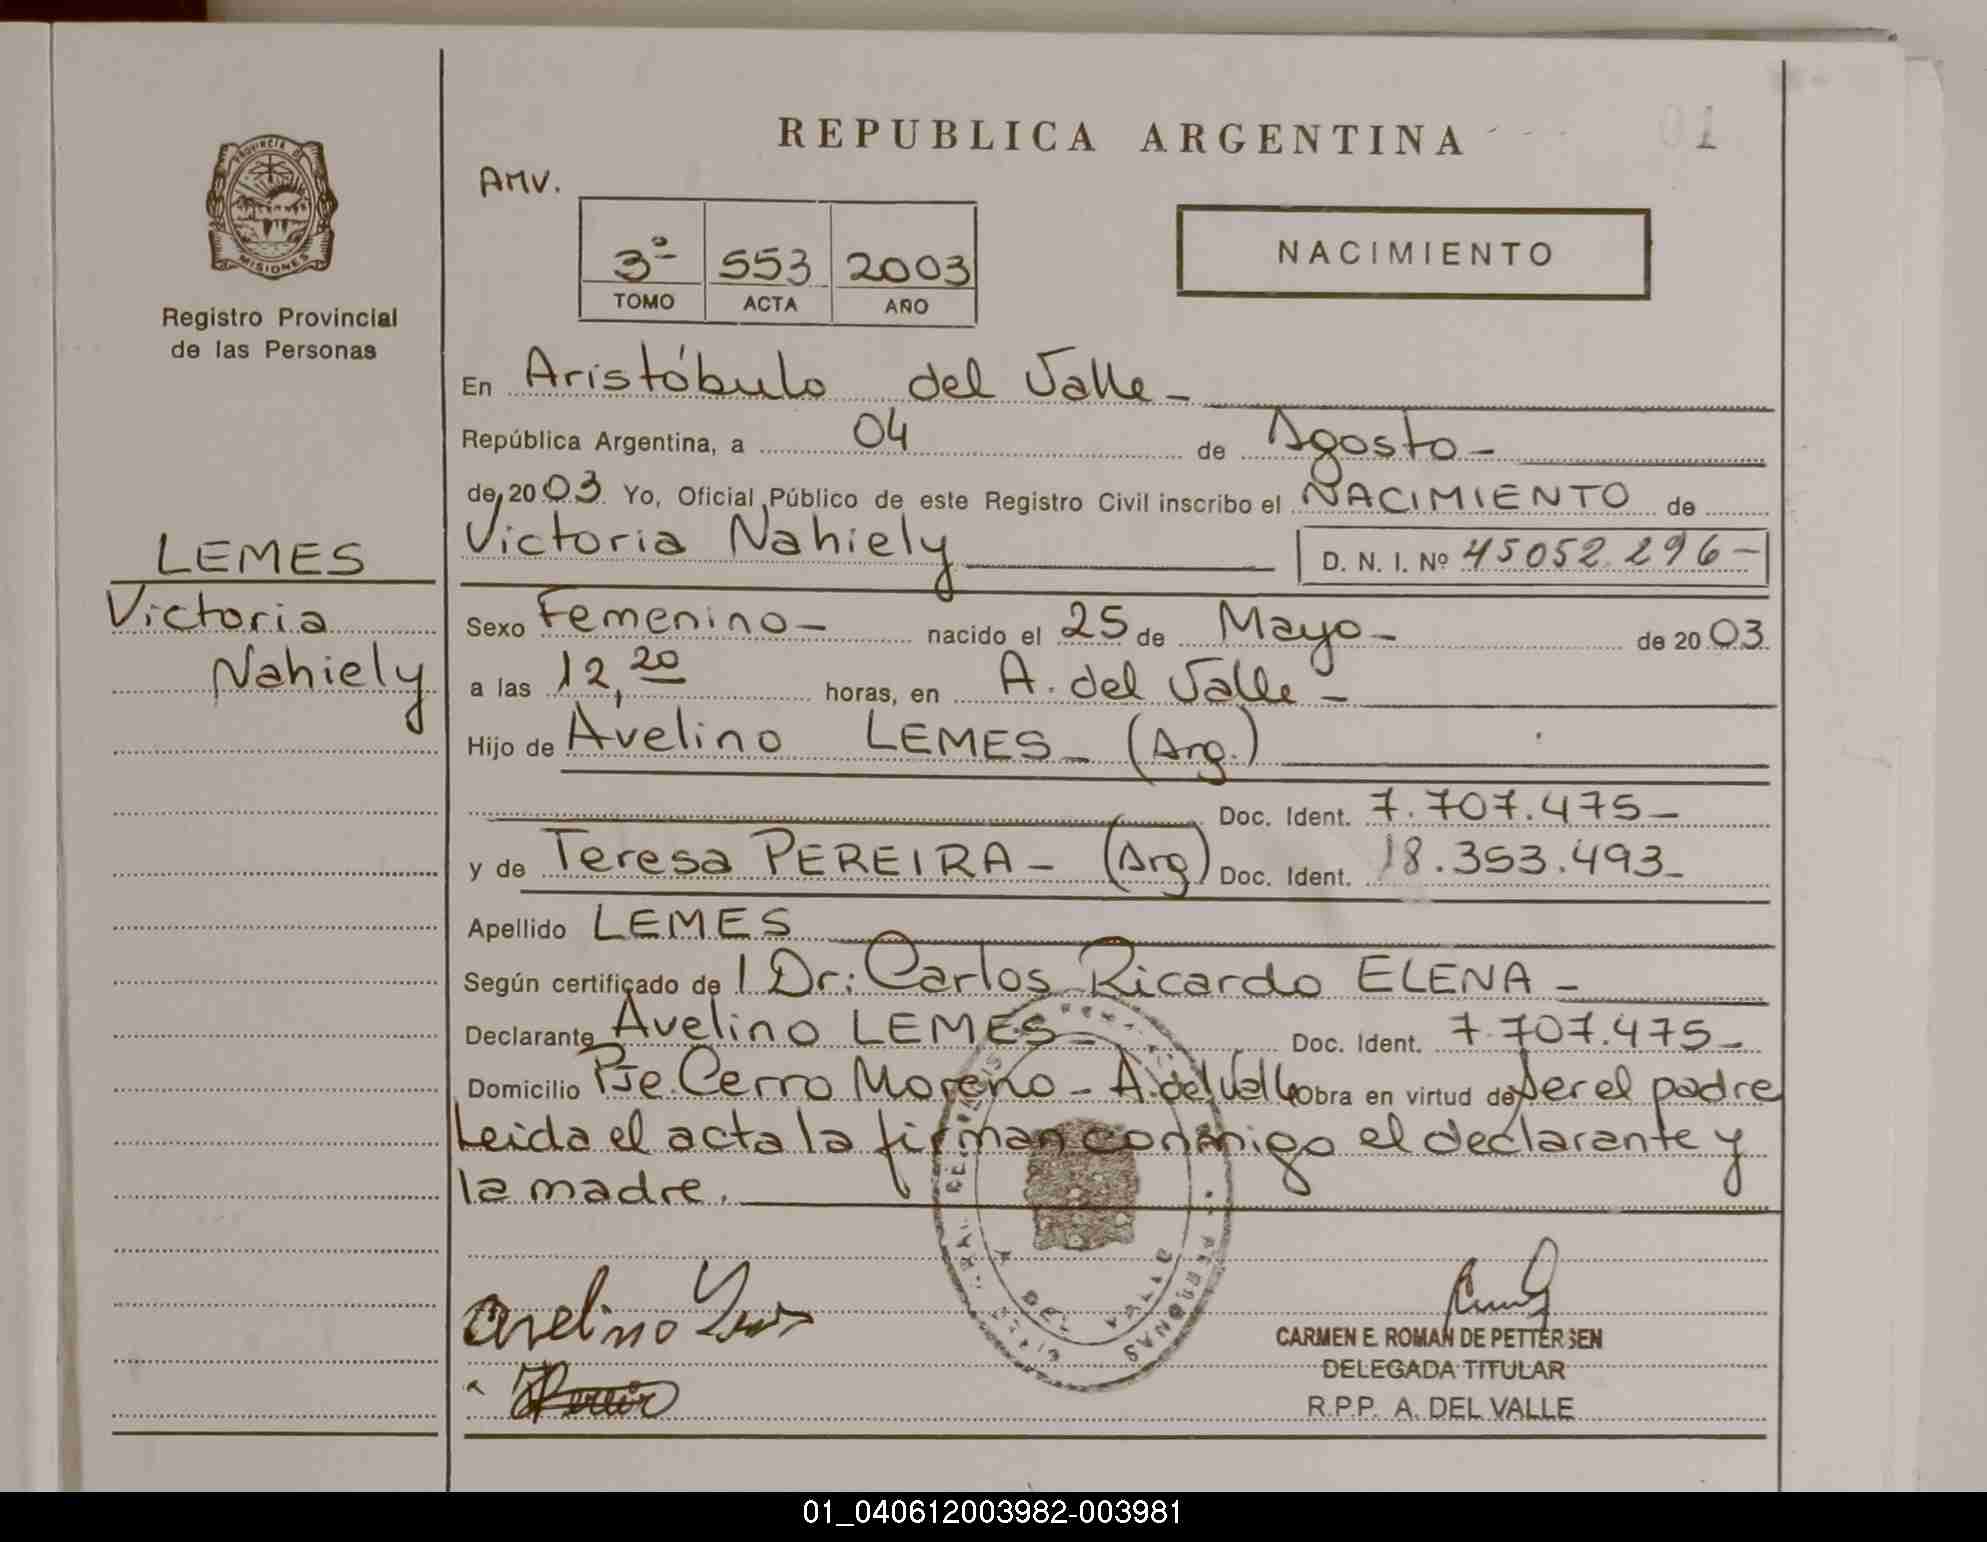 REPUBLICA ARGENTINA
01
AMV.
PROVINCIA DE
MISIONES
Registro Provincial
de las Personas
3º 553 2003
TOMO ACTA AÑO
NACIMIENTO
En Aristóbulo del Valle -
República Argentina, a 04 de Agosto -
de 2003 Yo, Oficial Público de este Registro Civil inscribo el NACIMIENTO de
Victoria Nahiely D. N. I. Nº 45052.296 -
LEMES
Victoria
Nahiely
Sexo Femenino - nacido el 25 de Mayo - de 2003
a las 12,20 horas, en A. del Valle -
Hijo de Avelino LEMES - (Arg.)
Doc. Ident. 7.707.475 -
y de Teresa PEREIRA - (Arg) Doc. Ident. 18.353.493 -
Apellido LEMES
Según certificado de l Dr: Carlos Ricardo ELENA -
Declarante Avelino LEMES - Doc. Ident. 7.707.475 -
Domicilio Pje. Cerro Moreno - A. del Valle Obra en virtud de ser el padre
Leida el acta la firman conmigo el declarante y
la madre.
Avelino
CARMEN E. ROMAN DE PETTERSEN
DELEGADA TITULAR
R.P.P. A. DEL VALLE
PERSONAS
A DEL VALLE
01_040612003982-003981